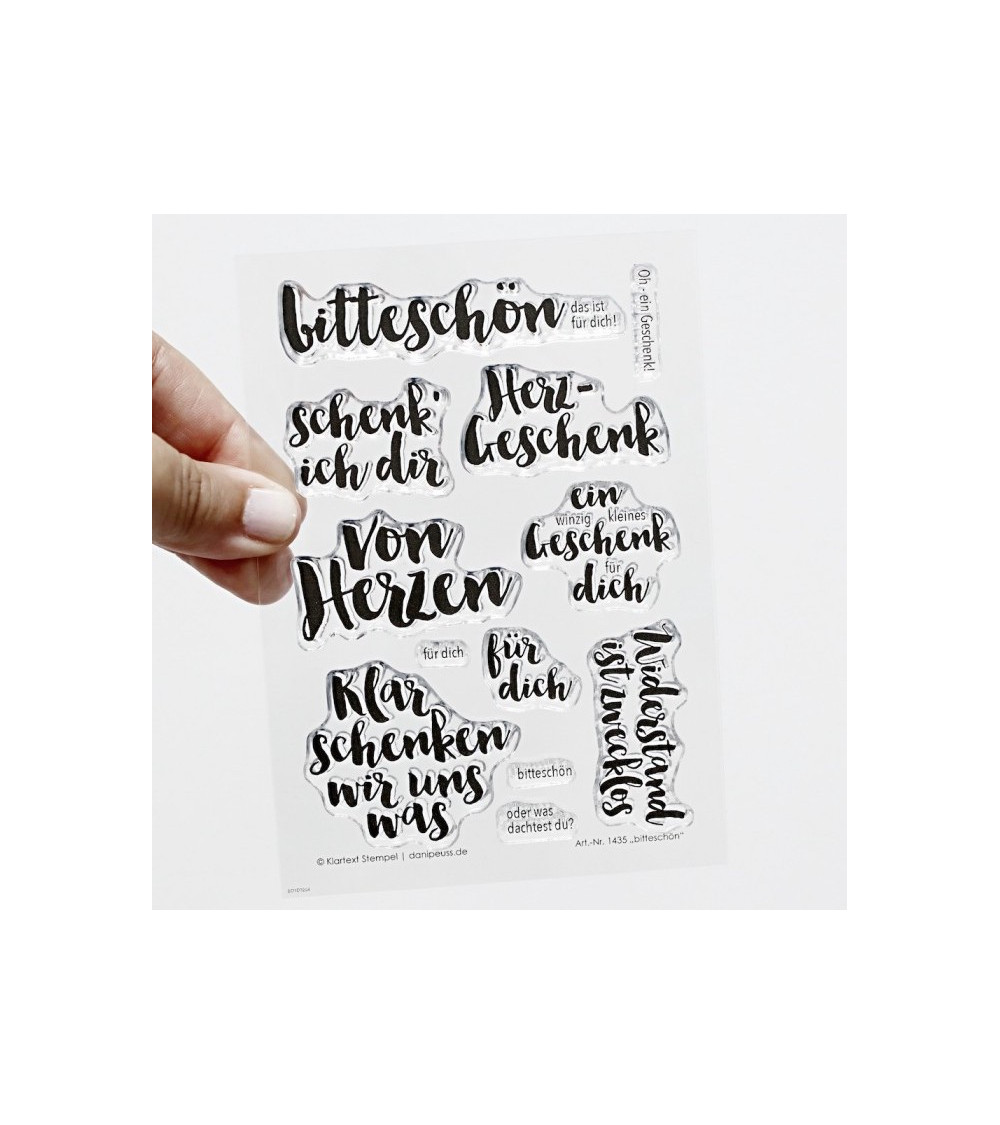 bitteschön
das ist
für dich!
Oh - ein Geschenk!
schenk'
ich dir
Herz-
Geschenk
von
Herzen
ein
winzig kleines
Geschenk
für
dich
für dich
für
dich
Widerstand
ist zwecklos
Klar
schenken
wir uns
was
bitteschön
oder was
dachtest du?
© Klartext Stempel | danipeuss.de
Art.-Nr. 1435 „bitteschön“